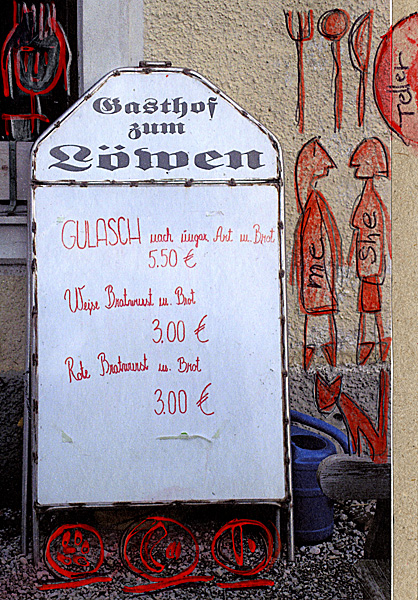 Gasthof
zum
Löwen
GULASCH nach ungar Art u. Brot
5.50 €
Weiße Bratwurst u. Brot
3.00 €
Rote Bratwurst u. Brot
3.00 €
Teller
me
she